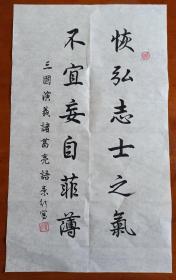 恢弘志士之氣
不宜妄自菲薄
三國演義諸葛亮語